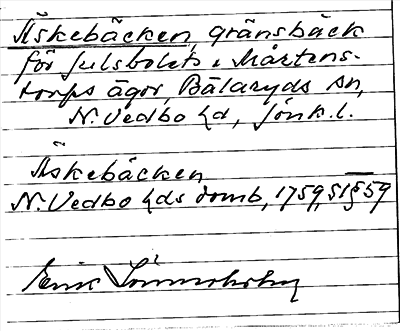 Äskebäcken, gränsbäck
för Julsbolets o Mårtens-
torps ägor, Bälaryds sn,
N. Vedbo hd, Jönk. l.
Äskebäcken
N. Vedbo hds domb, 1759, § 59
Erik